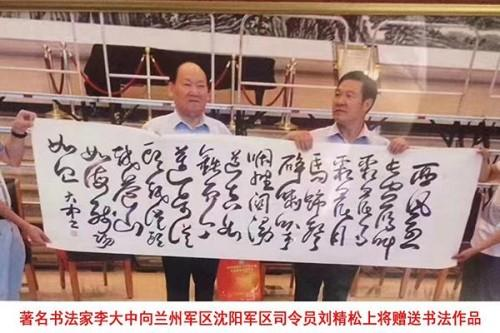 西風烈
长空雁叫
霜晨月
霜晨月
马蹄声
碎喇叭声
咽雄関漫
道真如
铁而今
迈步从
头越从头
越苍山
如海残阳
如血
著名书法家李大中向兰州军区沈阳军区司令员刘精松上将赠送书法作品